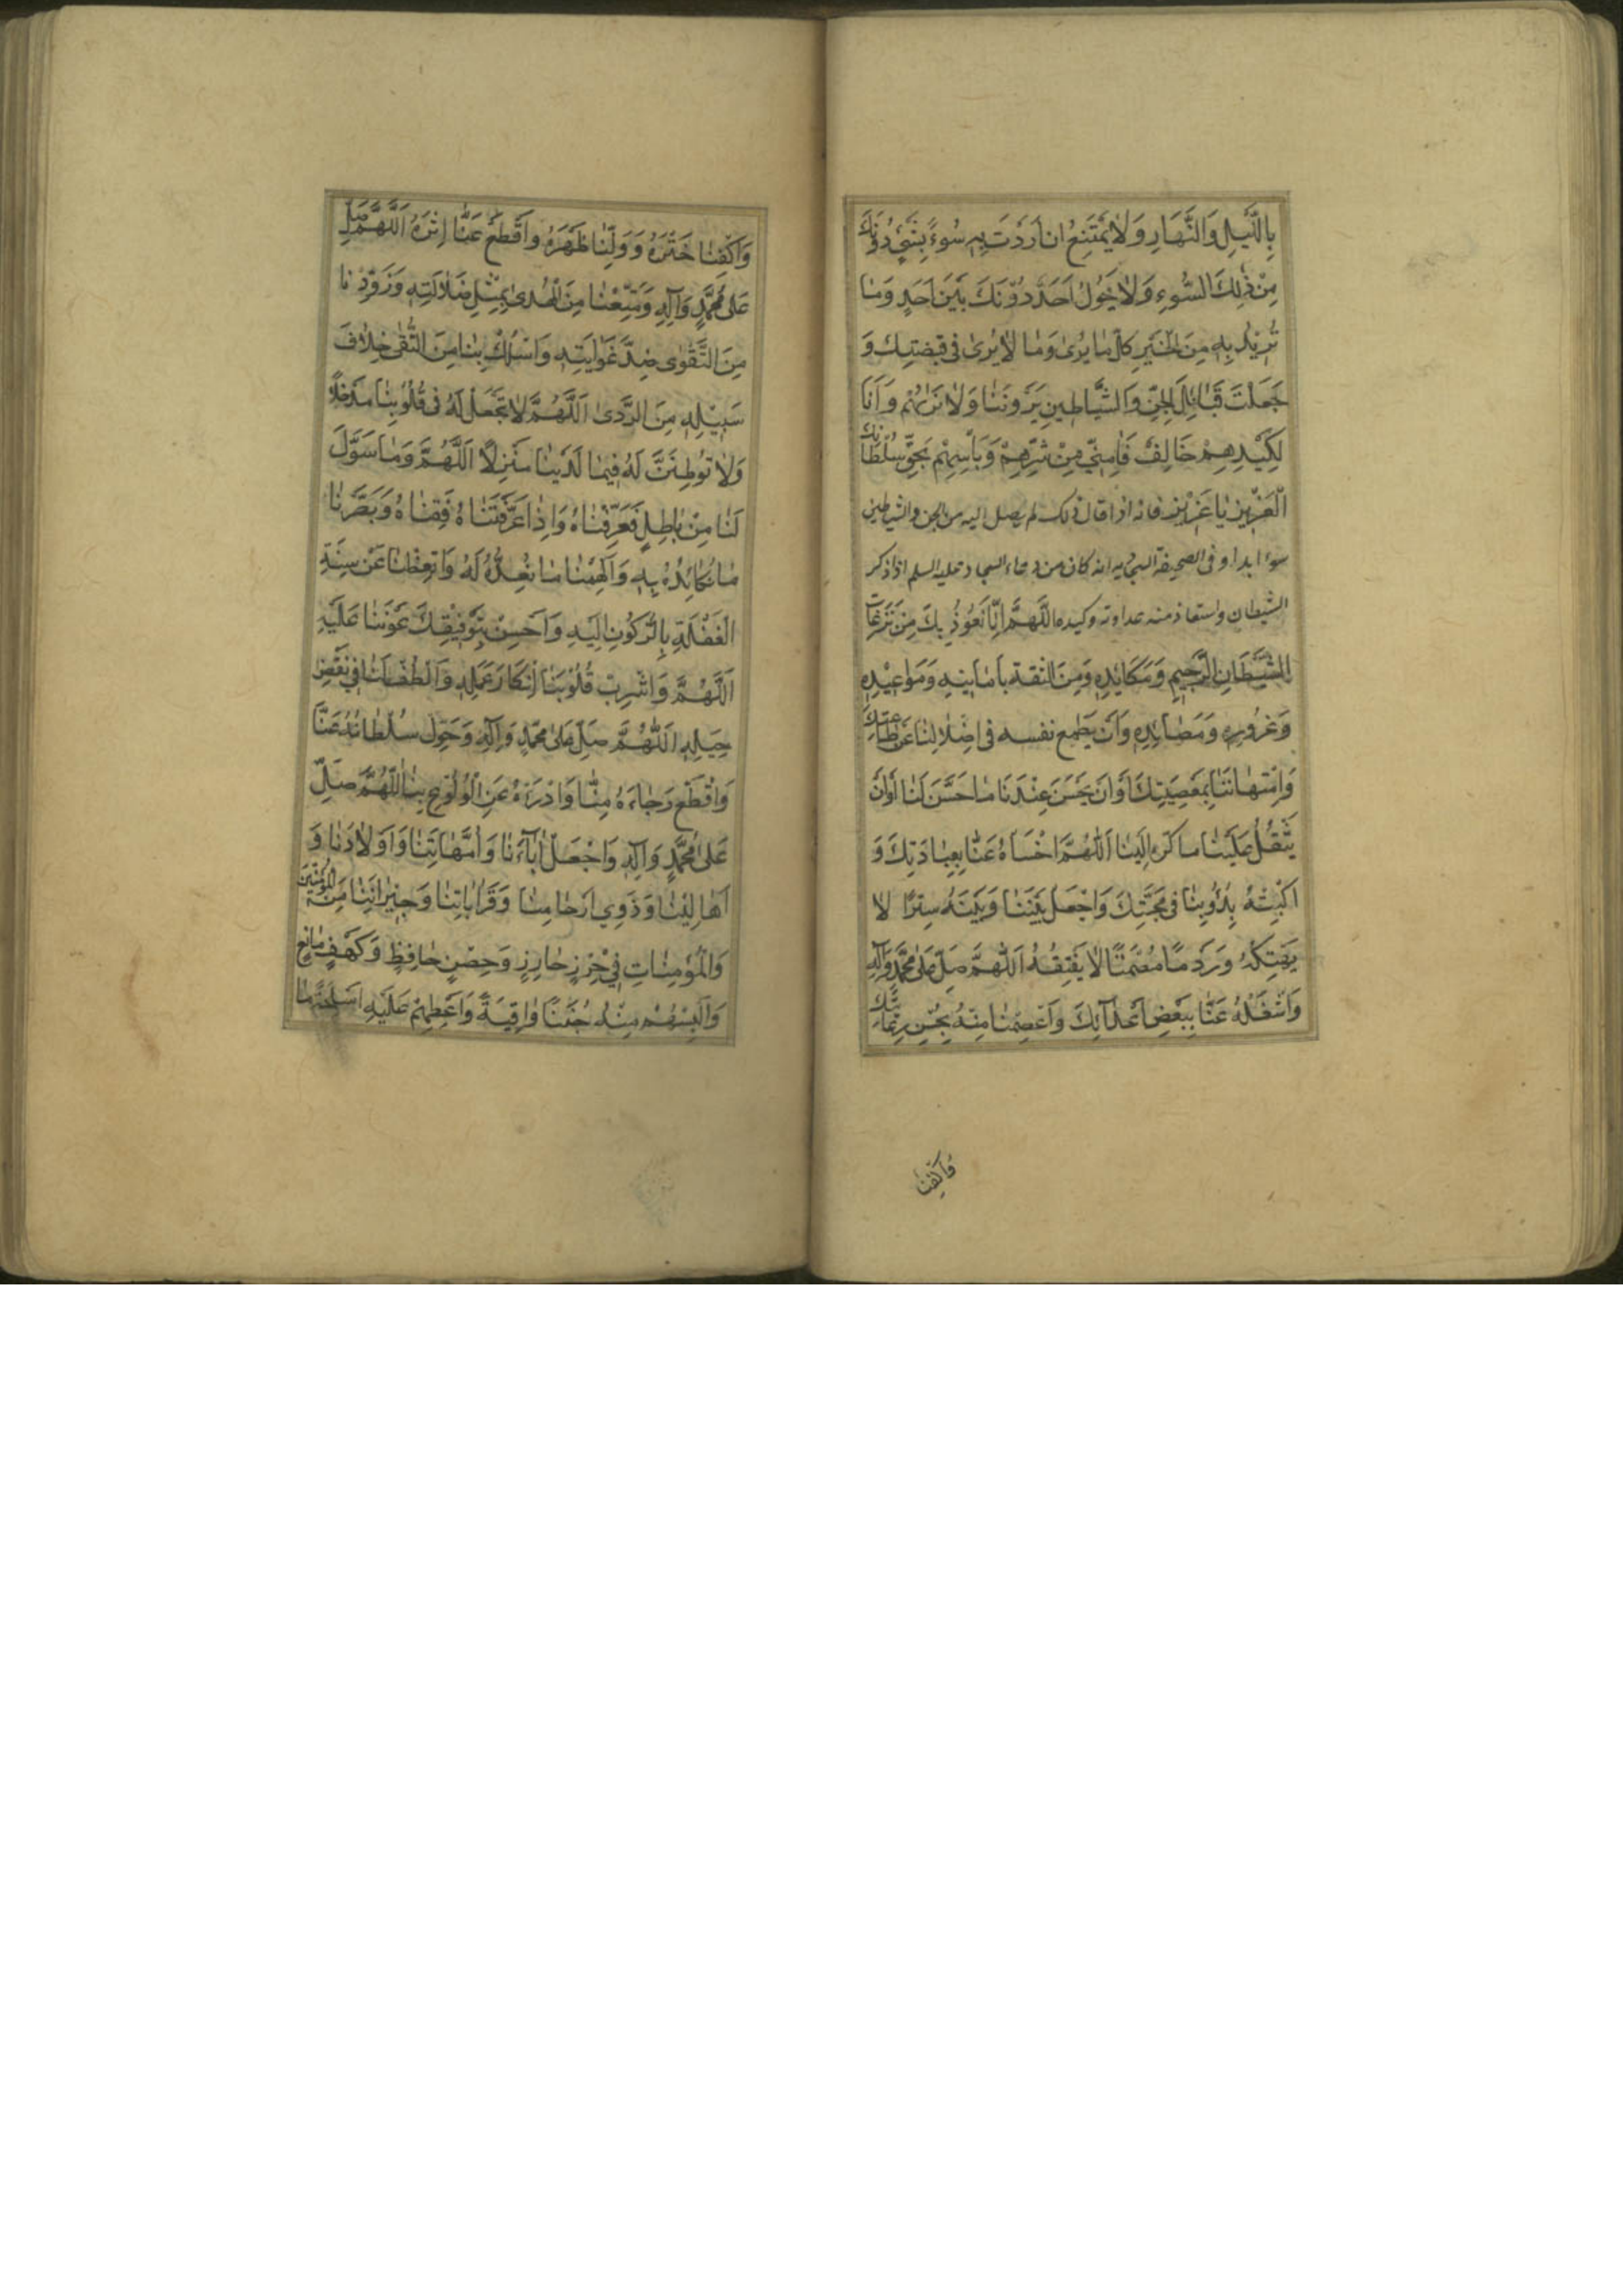 بِاللَّيْلِ وَالنَّهَارِ وَلَا يَمْتَنِعُ اِنْ اَرَدْتَ بِهِ سُوءً بِشَيْءٍ دُونَكَ
مِنْ ذٰلِكَ السُّوءِ وَلَا يَحُولُ اَحَدٌ دُوْنَكَ بَيْنَ اَحَدٍ وَمَا
تُرِيْدُ بِهِ مِنَ الْخَيْرِ كُلُّ مَا يُرىٰ وَمَا لَا يُرىٰ فى قبضتِكَ وَ
جَعَلْتَ قَبَائِلَ الْجِنِّ وَالشَّيَاطِينِ يَرَوْنَنَا وَلَا نَرٰيهُمْ وَاَنَا
لِكَيْدِهِمْ خَائِفٌ فَاٰمِنِّي مِنْ شَرِّهِمْ وَبَأْسِهِمْ بِحَقِّ سُلْطَانِكَ
الْعَزِيْزِ يَا عَزِيْزُ فانه اذا قال ذلك لم يصل اليه من الجن والشياطين
سوء ابدا و فى الصحيفة السجاديه انه كان من دعاء السجاد عليه السلم اذا ذكر
الشيطان واستعاذ منه عداوته وكيده اللَّهُمَّ اِنَّا نَعُوْذُ بِكَ مِنْ نَزَغَاتِ
الشَّيْطَانِ الرَّجِيْمِ وَمَكَايِدِهِ وَمِنَ الثقة بأمانيه وَمَوَاعِيْدِهِ
وَغُرُوْرِهِ وَمَصَايِدِهِ وَاَنْ يطمع نفسه فى اِضْلَالِنَا عَنْ طَاعَتِكَ
وَامْتِهَانَنَا بِمَعْصِيَتِكَ اَوْ اَنْ يَحْسُنَ عِنْدَنَا مَا حَسَّنَ لَنَا اَوْ اَنْ
يَثْقُلَ عَلَيْنَا مَا كَرَّهَ اِلَيْنَا اَللّٰهُمَّ اخْسَأْهُ عَنَّا بِعِبَادَتِكَ وَ
اكْبِتْهُ بِدُؤُبِنَا فى مَحَبَّتِكَ وَاجْعَلْ بَيْنَنَا وَبَيْنَهُ سِتْرًا لا
يَهْتِكُهُ وَرَدْمًا مُصْمَتًا لَا يَفْتِقُهُ اَللّٰهُمَّ صَلِّ عَلىٰ مُحَمَّدٍ وَآلِهِ
وَاشْغَلْهُ عَنَّا بِبَعْضِ اَعْدَائِكَ وَاعْصِمْنَا مِنْهُ بِحُسْنِ رِعَايَتِكَ
وَاكْفِنَا
وَاكْفِنَا خَتْرَهُ وَوَلِّنَا ظَهْرَهُ وَاَقْطَعْ عَنَّا اِثْرَهُ اَللّٰهُمَّ صَلِّ
عَلىٰ مُحَمَّدٍ وَآلِهِ وَمَتِّعْنَا مِنَ الْهُدىٰ بِمِثْلِ ضَلَالَتِهِ وَزَوِّدْنَا
مِنَ التَّقْوٰى ضِدَّ غَوَايَتِهِ وَاسْلُكْ بِنَا مِنَ التُّقٰى خِلَافَ
سَبِيْلِهِ مِنَ الرَّدىٰ اَللّٰهُمَّ لَا تَجْعَلْ لَهُ فى قُلُوْبِنَا مَدْخَلًا
وَلَا تُوْطِنَنَّ لَهُ فِيمَا لَدَيْنَا مَنْزِلًا اَللّٰهُمَّ وَمَا سَوَّلَ
لَنَا مِنْ بَاطِلٍ فَعَرِّفْنَاهُ وَاِذَا عَرَّفْتَنَاهُ فَقِنَاهُ وَبَصِّرْنَا
مَا نُكَائِدُهُ بِهِ وَاَلْهِمْنَا مَا نُعِدُّهُ لَهُ وَاَيْقِظْنَا عَنْ سِنَةِ
الْغَفْلَةِ بِالرُّكُوْنِ اِلَيْهِ وَاَحْسِنْ بِتَوْفِيْقِكَ عَوْنَنَا عَلَيْهِ
اَللّٰهُمَّ وَاَشْرِبْ قُلُوْبَنَا اِنْكَارَ عَمَلِهِ وَالْطُفْ لَنَا فِي نَقْضِ
حِيَلِهِ اَللّٰهُمَّ صَلِّ عَلىٰ مُحَمَّدٍ وَآلِهِ وَحَوِّلْ سُلْطَانَهُ عَنَّا
وَاقْطَعْ رَجَاءَهُ مِنَّا وَادْرَءْهُ عَنِ الْوُلُوْعِ بِنَا اَللّٰهُمَّ صَلِّ
عَلىٰ مُحَمَّدٍ وَآلِهِ وَاجْعَلْ اٰبَاءَنَا وَاُمَّهَاتِنَا وَاَوْلَادَنَا وَ
اَهَالِيْنَا وَذَوِي اَرْحَامِنَا وَقَرَابَاتِنَا وَجِيْرَانِنَا مِنَ الْمُؤْمِنِيْنَ
وَالْمُؤْمِنَاتِ فِي حِرْزٍ حَارِزٍ وَحِصْنٍ حَافِظٍ وَكَهْفٍ مَانِعٍ
وَاَلْبِسْهُمْ مِنْهُ جُنَنًا وَاقِيَةً وَاَعْطِهِمْ عَلَيْهِ اَسْلِحَةً مَا